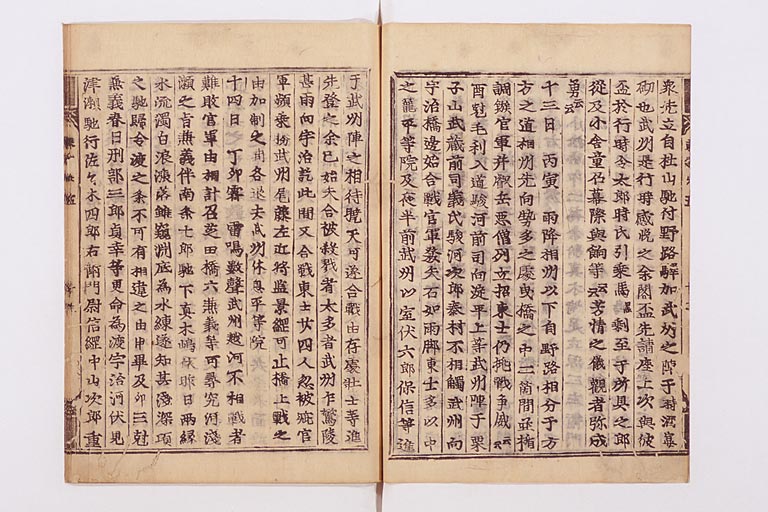 衆先立自杜山馳付野路驛加武州之陣于時酒宴
砌也武州是行時感悦之余閣盃先請座上次與彼
盃於行時令太郎時氏引乗馬黒剰至于所具之郎
從及小舎童召幕際與餉等云々芳情之儀觀者弥成
勇云々
十三日 丙寅 雨降相州以下自野路相分于方
方之道相州先向勢多之處曳橋之中二箇間並楯
調鏃官軍并叡岳悪僧列立招東士仍挑戰争威云々
酉剋毛利入道駿河前司向淀平上等武州陣于栗
子山武蔵前司義氏駿河次郎泰村不相觸武州向
宇治橋邊始合戰官軍發矢石如雨脚東士多以中
之籠平等院及夜半前武州以室伏六郎保信等進
于武州陣之相待曉天可遂合戰由存處壯士等進
先登之余已始矢合被殺戮者太多者武州乍驚陵
甚雨向宇治訖此間又合戰東士廿四人忽被疵官
軍頻乗勝武州尾藤左近将監景綱可止橋上戰之
由加制之間各退去武州休息平等院
十四日 丁卯霽 雷鳴數聲武州越河不相戰者
難敗官軍由相計召芝田橘六兼義等可尋究河淺
瀬之旨兼義伴南条七郎馳下真木嶋依昨日雨緑
水流濁白浪漲落雖窺淵底為水練遂知其淺深頃
之馳歸令渡之条不可有相違之由申畢及卯三剋
兼義春日刑部三郎貞幸等更命為渡宇治河伏見
津瀬馳行佐々木四郎右衛門尉信綱中山次郎重